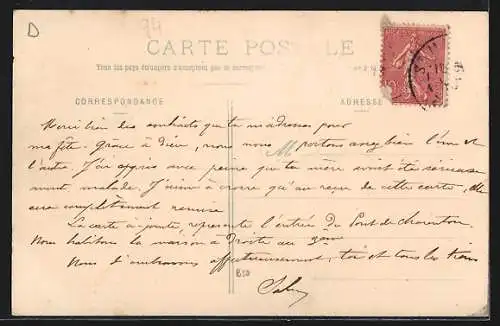 D
94
CARTE POSTALE
Tous les pays étrangers n'acceptent pas la correspondance
CORRESPONDANCE
ADRESSE
Merci bien des souhaits que tu m'adresses pour
ma fête. Grâce à Dieu, nous nous M portons assez bien l'un et
l'autre. J'ai appris avec peine que ta mère avait été sérieuse
ment malade. J'aime à croire qu'au reçue de cette carte, elle
sera complètement remise
La carte ci jointe, représente l'entrée du Pont de Charenton.
Nous habitons la maison à Droite au 3ème
Nous t'embrassons affectueusement, toi et tous les tiens
B20